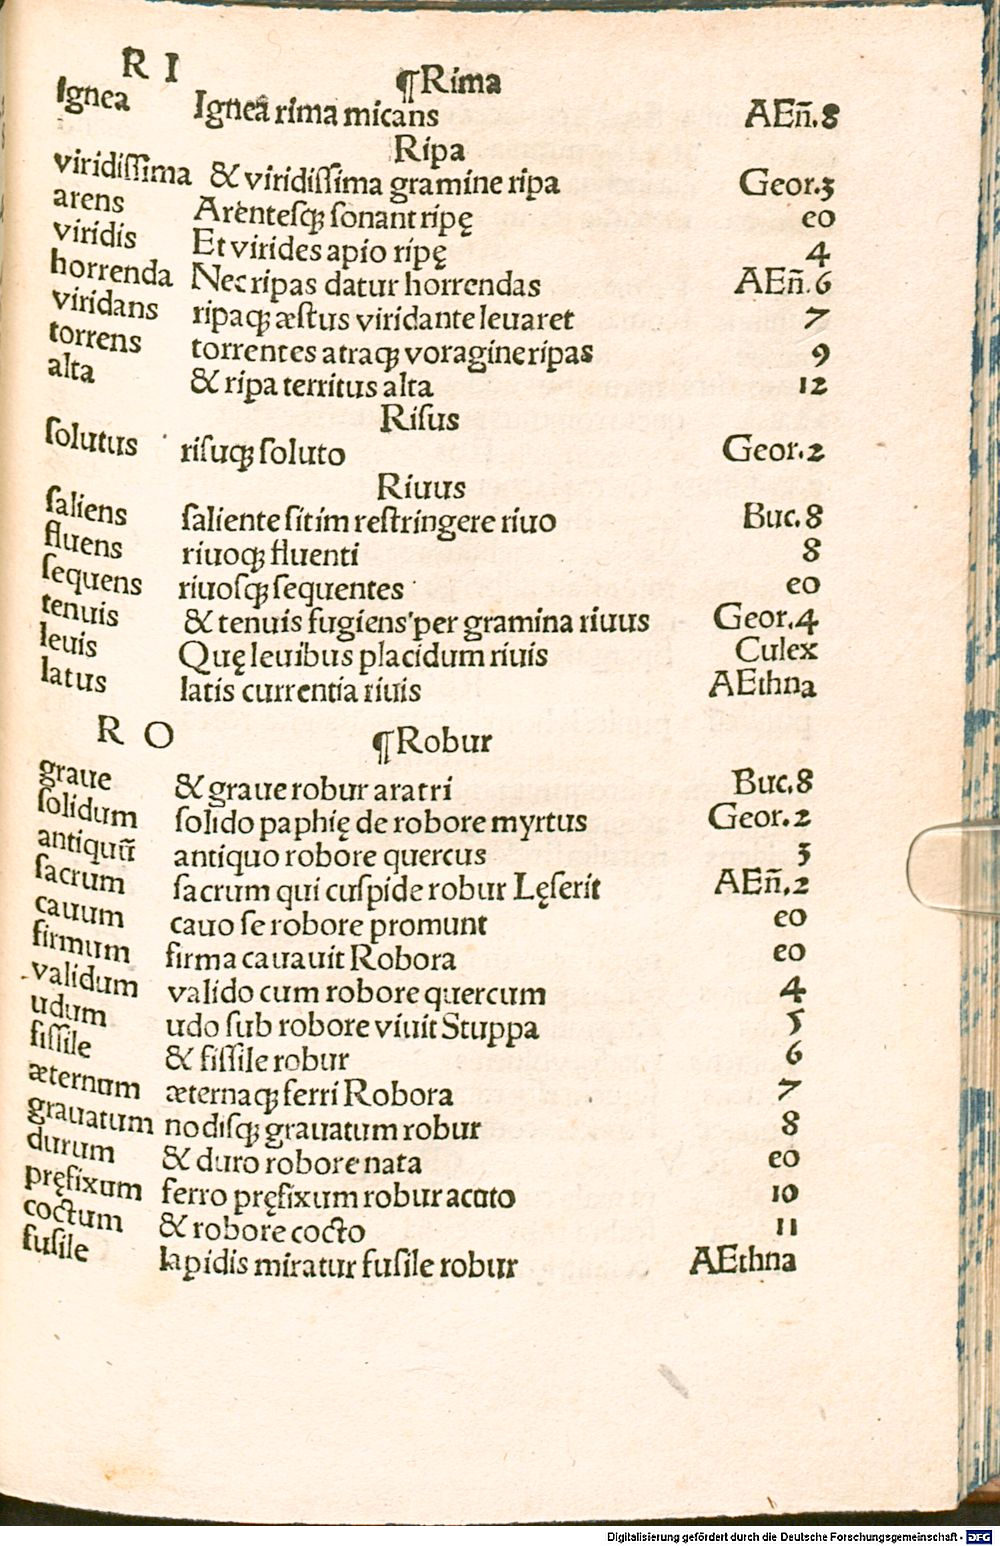 R I ¶Rima
Ignea Ignea rima micans AEn̄.8
Ripa
viridiſſima & viridiſſima gramine ripa Geor.3
arens Arenteſqꝫ ſonant ripę eo
viridis Et virides apio ripę 4
horrenda Nec ripas datur horrendas AEn̄.6
viridans ripaqꝫ æſtus viridante leuaret 7
torrens torrentes atraqꝫ voragine ripas 9
alta & ripa territus alta 12
Riſus
ſolutus riſuqꝫ ſoluto Geor.2
Riuus
ſaliens ſaliente ſitim reſtringere riuo Buc.8
fluens riuoqꝫ fluenti 8
ſequens riuoſqꝫ ſequentes eo
tenuis & tenuis fugiens per gramina riuus Geor.4
leuis Quę leuibus placidum riuis Culex
latus latis currentia riuis AEthna
R O ¶Robur
graue & graue robur aratri Buc.8
ſolidum ſolido paphię de robore myrtus Geor.2
antiquũ antiquo robore quercus 3
ſacrum ſacrum qui cuſpide robur Lęſerit AEn̄.2
cauum cauo ſe robore promunt eo
firmum firma cauauit Robora eo
validum valido cum robore quercum 4
udum udo ſub robore viuit Stuppa 5
fiſſile & fiſſile robur 6
æternum æternaqꝫ ferri Robora 7
grauatum nodiſqꝫ grauatum robur 8
durum & duro robore nata eo
pręfixum ferro pręfixum robur acuto 10
coctum & robore cocto 11
fuſile lapidis miratur fuſile robur AEthna
Digitalisierung gefördert durch die Deutsche Forschungsgemeinschaft - DFG